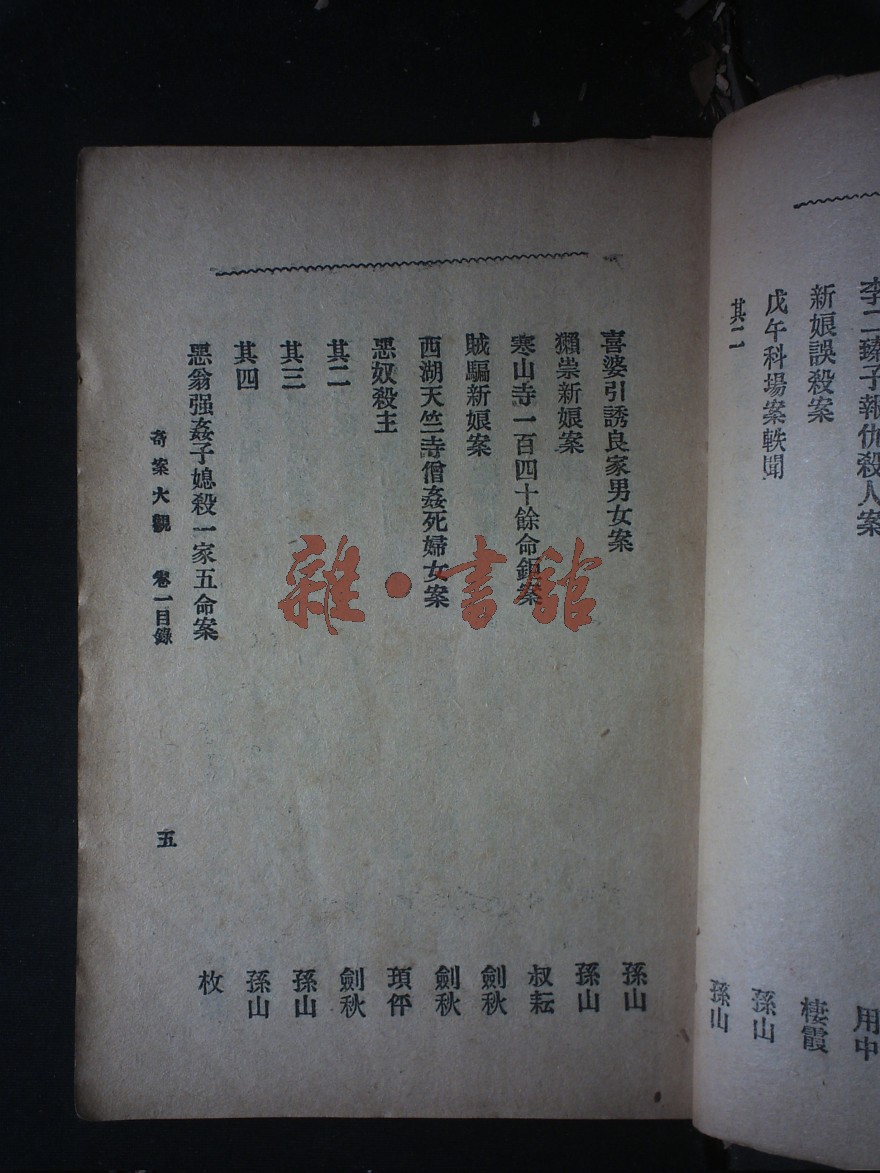 李二臻子報仇殺人案 用中
新娘誤殺案 棲霞
戊午科場案軼聞 孫山
其二 孫山
喜婆引誘良家男女案 孫山
獺祟新娘案 孫山
寒山寺一百四十餘命銅案 叔耘
賊騙新娘案 劍秋
西湖天竺寺僧姦死婦女案 劍秋
惡奴殺主 頊伻
其二 劍秋
其三 孫山
其四 孫山
惡翁强姦子媳殺一家五命案 枚
奇案大觀 卷一目錄 五
雜·書館